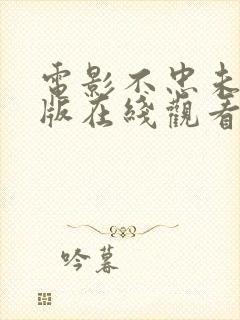 電影不忠未
版在綫觀看
吟暮